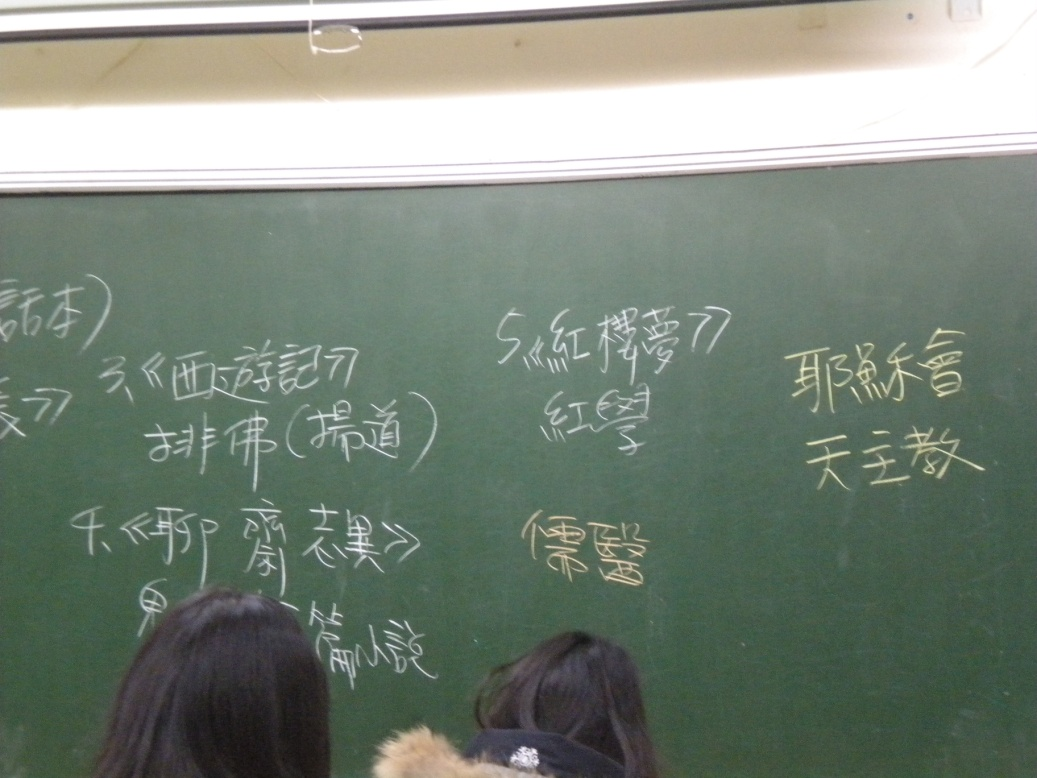 話本)
》
3、《西遊記》
排佛(揚道)
4、《聊齋志異》
篇小說
5《紅樓夢》
紅學
儒醫
耶穌會
天主教